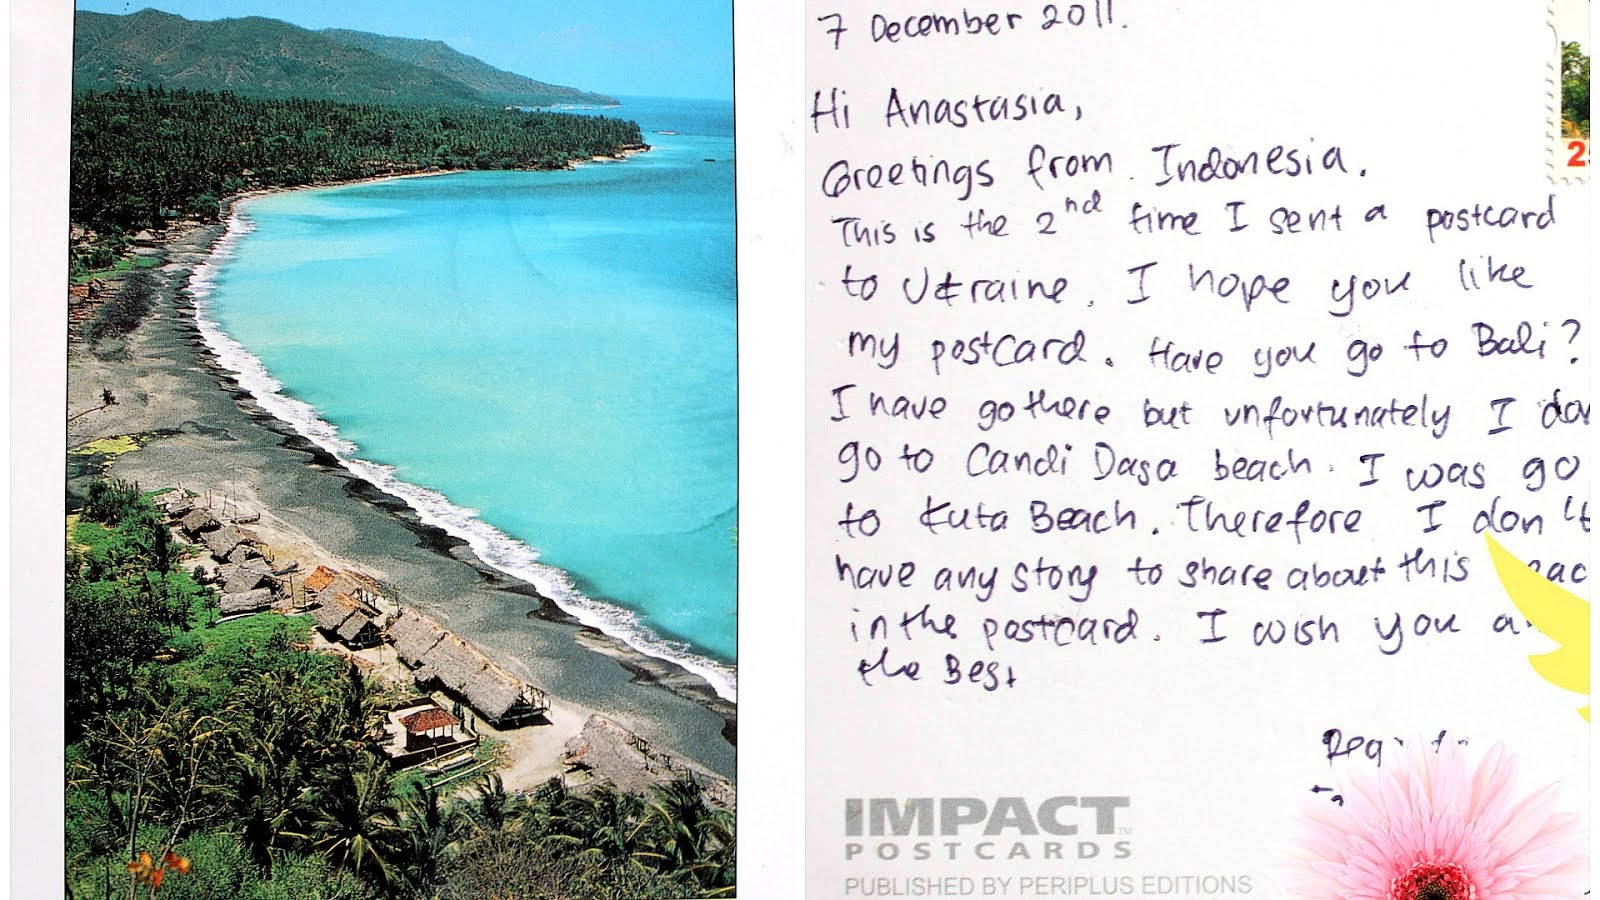 7 December 2011.
2
Hi Anastasia,
Greetings from Indonesia.
This is the 2nd time I sent a postcard
to Ukraine. I hope you like
my postcard. Have you go to Bali?
I have go there but unfortunately I
go to Candi Dasa beach. I was go
to Kuta Beach. Therefore I don't
have any story to share about this
in the postcard. I wish you
the Best
IMPACT™
POSTCARDS
PUBLISHED BY PERIPLUS EDITIONS